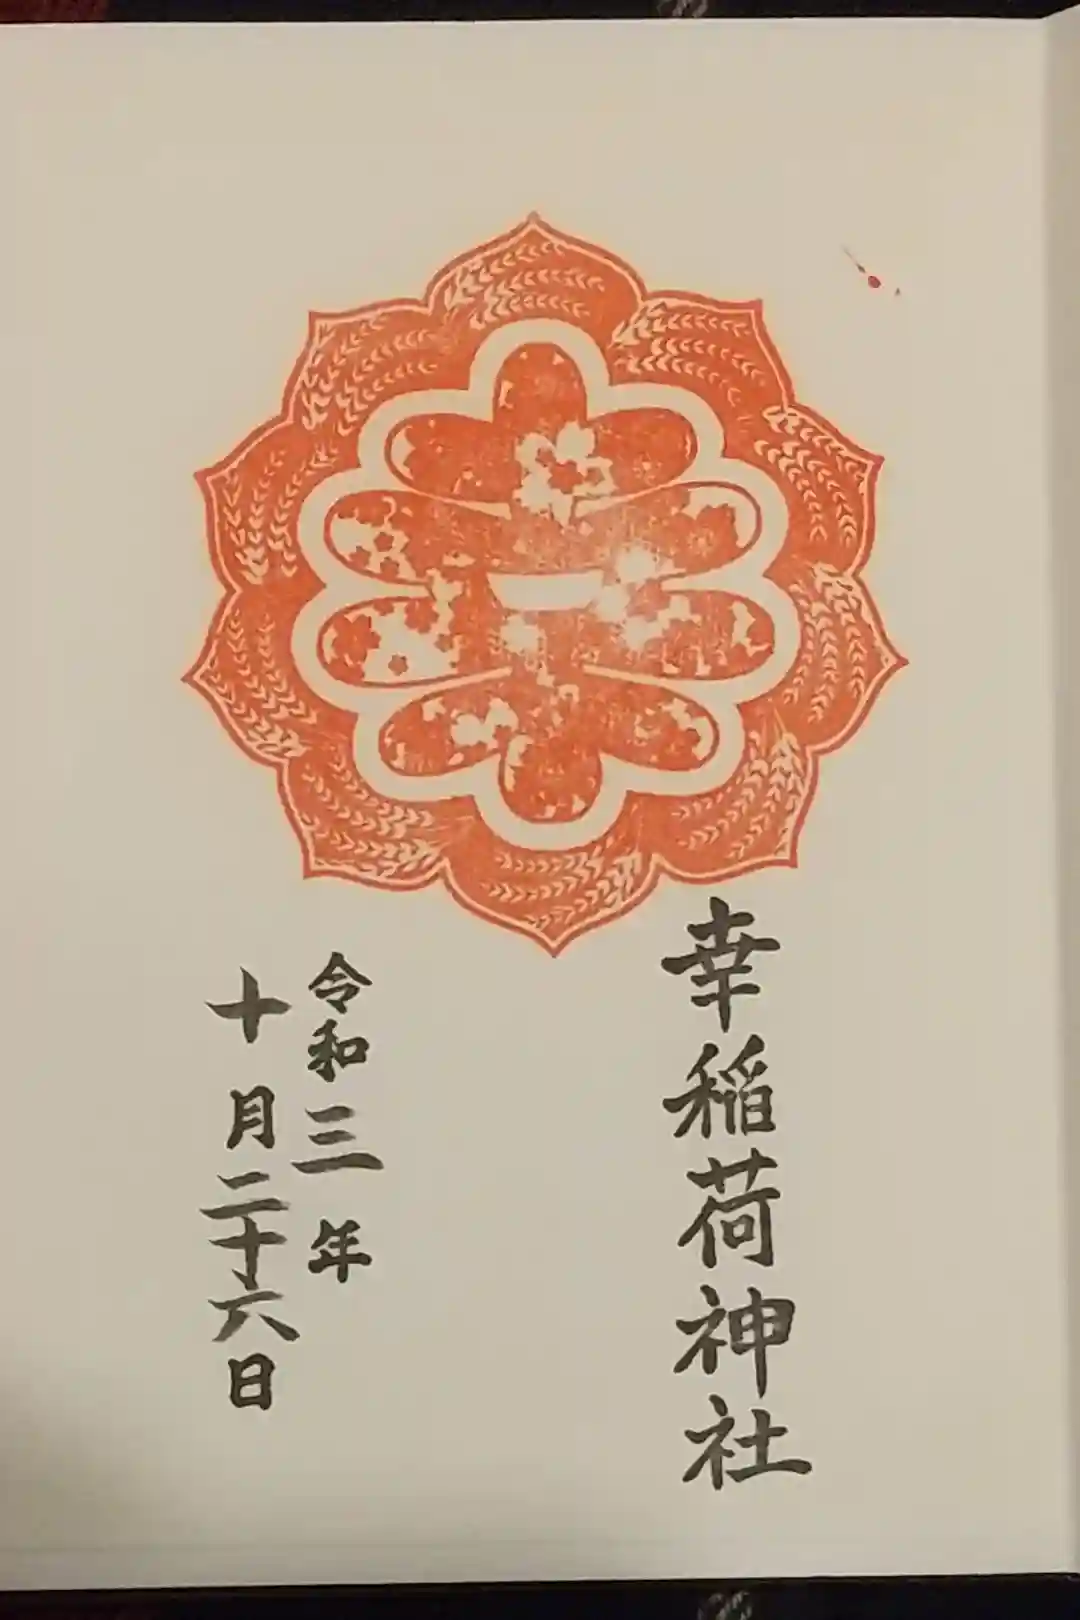 幸稲荷神社
令和三年
十月二十六日